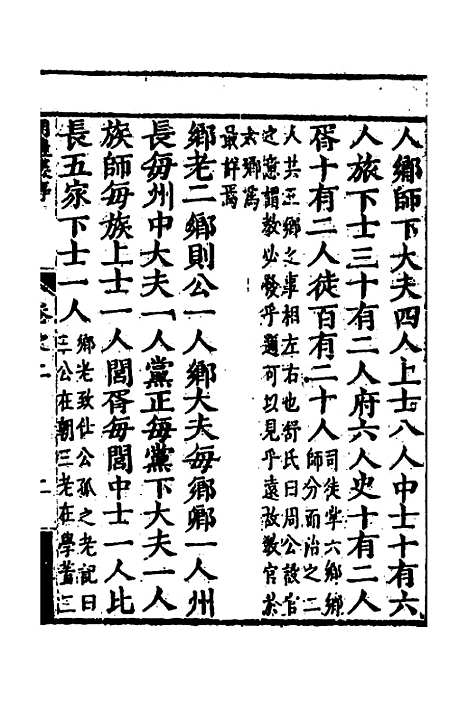 人鄉師下大夫四人上士八人中士十有六
人旅下士三十有二人府六人史十有二人
胥十有二人徒百有二十人司徒掌六鄉鄉
師分而治之二
人共三鄉之事相左右也舒氏曰周公設官
之意謂教必發乎邇可以見乎遠故教官於
六鄉爲
最詳焉
鄉老二鄉則公一人鄉大夫每鄉卿一人州
長每州中大夫一人黨正每黨下大夫一人
族師每族上士一人閭胥每閭中士一人比
長五家下士一人鄉老致仕公孤之老記曰
三公在朝三老在學蓋三
卷之二
二